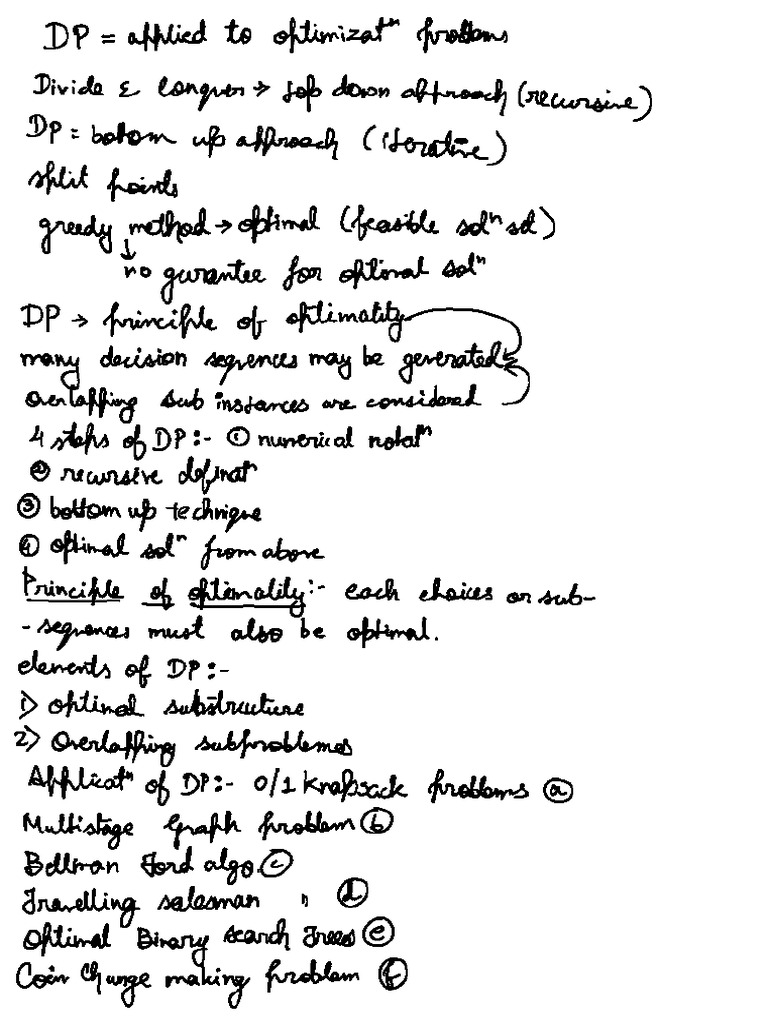 DP = applied to optimizatⁿ problems
Divide & Conquer → top down approach (recursive)
DP = bottom up approach (iterative)
split points
greedy method → optimal (feasible solⁿ set)
↓
no gurantee for optimal solⁿ
DP → principle of optimality
many decision seqences may be generated
overlapping sub instances are considered
4 steps of DP:- ① numerical notatⁿ
② recursive definatⁿ
③ bottom up technique
④ optimal solⁿ from above
Principle of optimality:- each choices or sub-
-seqences must also be optimal.
elements of DP:-
1> optimal substructure
2> overlapping subproblems
Applicatⁿ of DP:- 0/1 Knapsack problems ⓐ
Multistage Graph problem ⓑ
Bellman Ford algo. ⓒ
Travelling salesman " ⓓ
Optimal Binary search Trees ⓔ
Coin Change making problem ⓕ